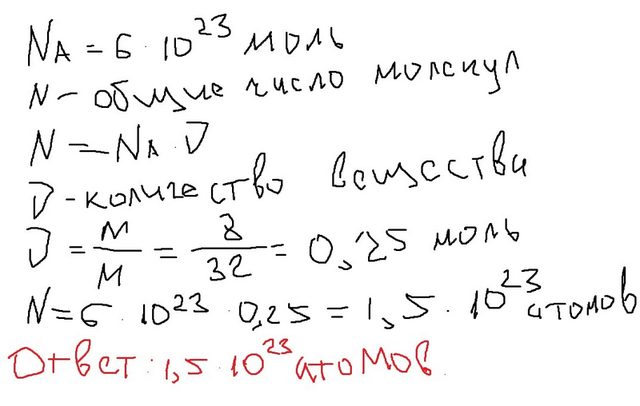 NA = 6 · 10²³ моль
N - общие число молекул
N = NA · ν
ν - количество вещества
ν = m/M = 8/32 = 0,25 моль
N = 6 · 10²³ · 0,25 = 1,5 · 10²³ атомов
Ответ: 1,5 · 10²³ атомов.